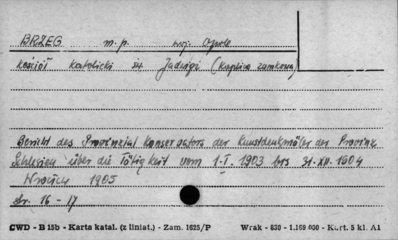 BRZEG m.p. woj. Opole
kościół katolicki św Jadwigi (kaplica zamkowa)
Bericht des Provinzial Konservators der Kunstdenkmäler der Provinz
Schlesien über die Tätigkeit vom 1.I. 1903 bis 31.XII. 1604
Wrocław 1905
str. 16-17
CWD - B 15b - Karta katal. (z liniat.) - Zam. 1625/P Wrak - 830 - 1.169 000 - Kart. 5 kl. A1